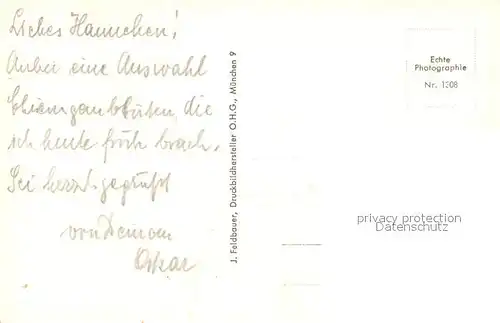 Liebes Hannchen!
Anbei eine Auswahl
Chiemgaublüten, die
ich heute früh brach.
Sei herzl. gegrüßt
von Deinem
Oskar
J. Feldbauer, Druckbildhersteller O.H.G., München 9
Echte
Photographie
Nr. 1308
privacy protection
Datenschutz